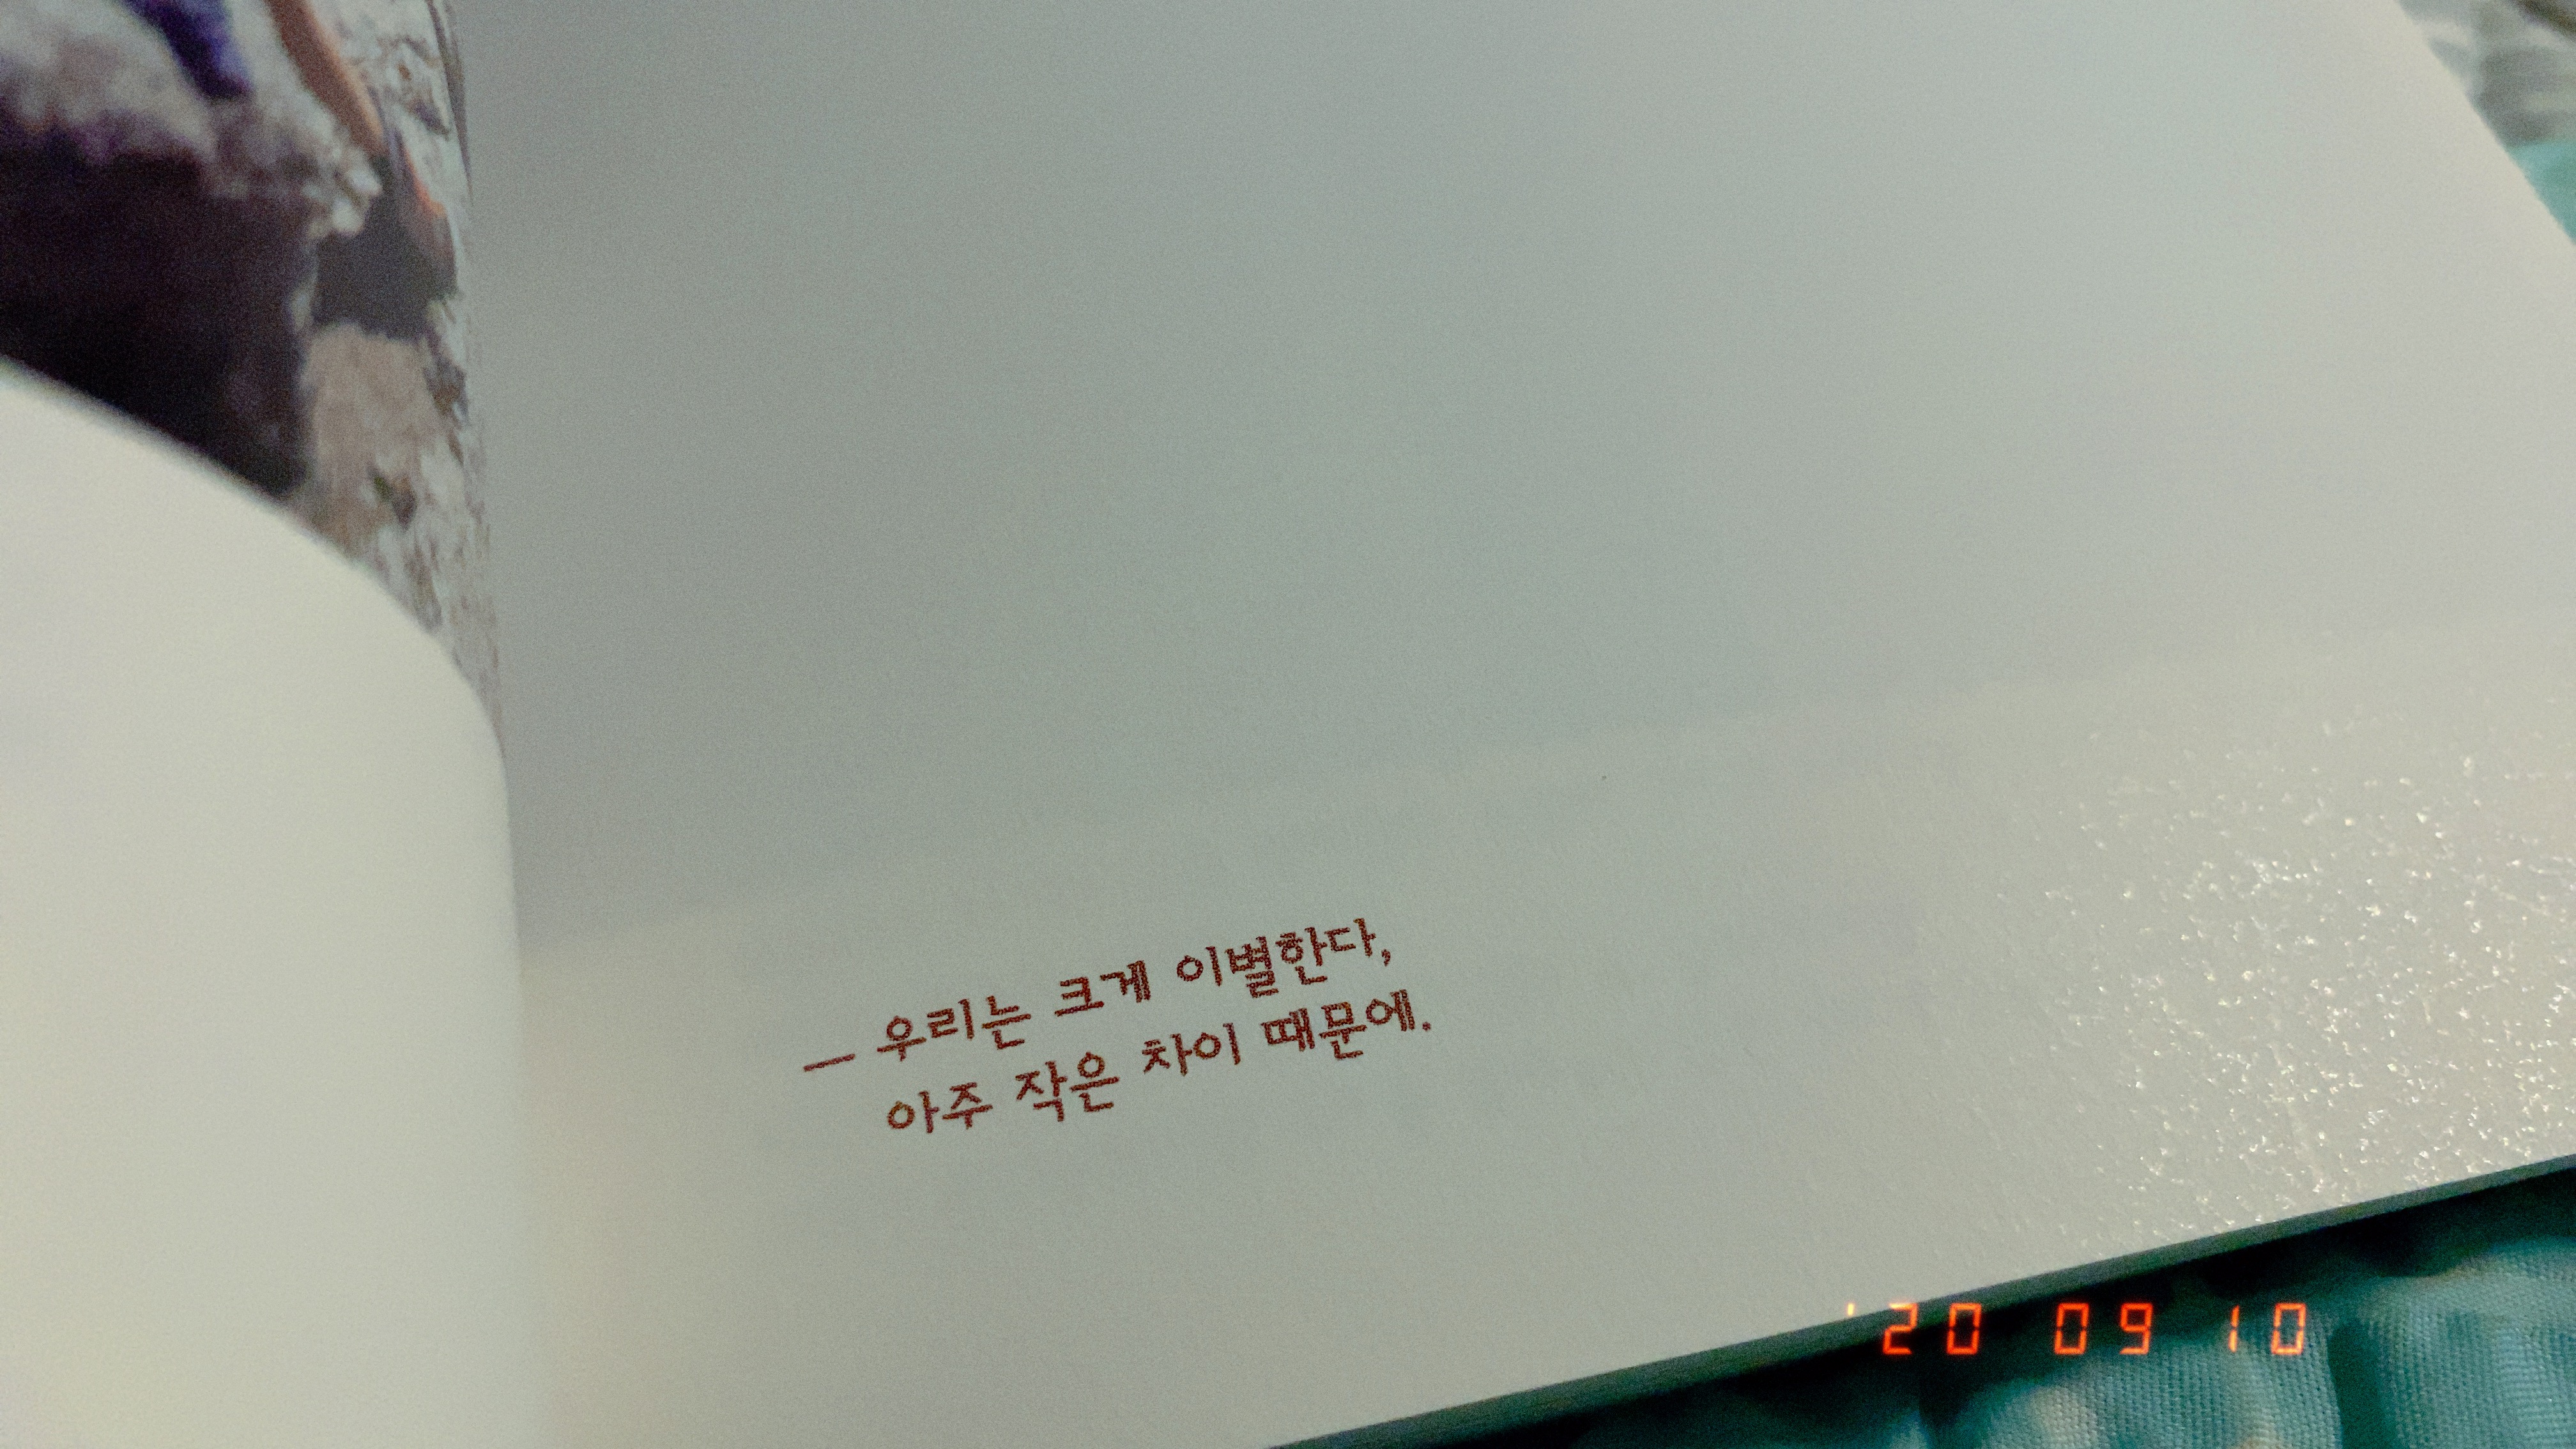 — 우리는 크게 이별한다,
아주 작은 차이 때문에.
'20 09 10